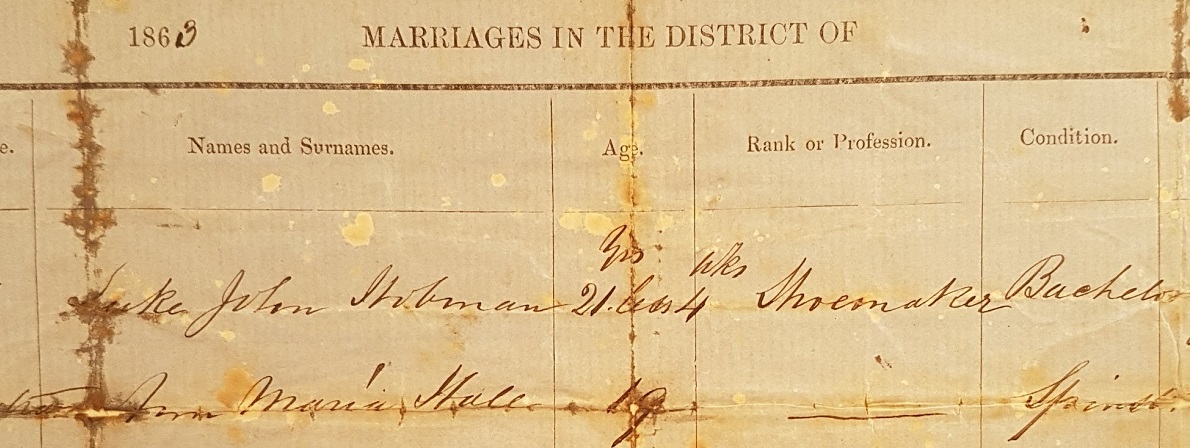 1863 MARRIAGES IN THE DISTRICT OF
e. Names and Surnames. Age. Rank or Profession. Condition.
Yrs wks
Luke John Stobman 21. less 4 Shoemaker Bachelor
Ann Maria Hall 19 Spinst.